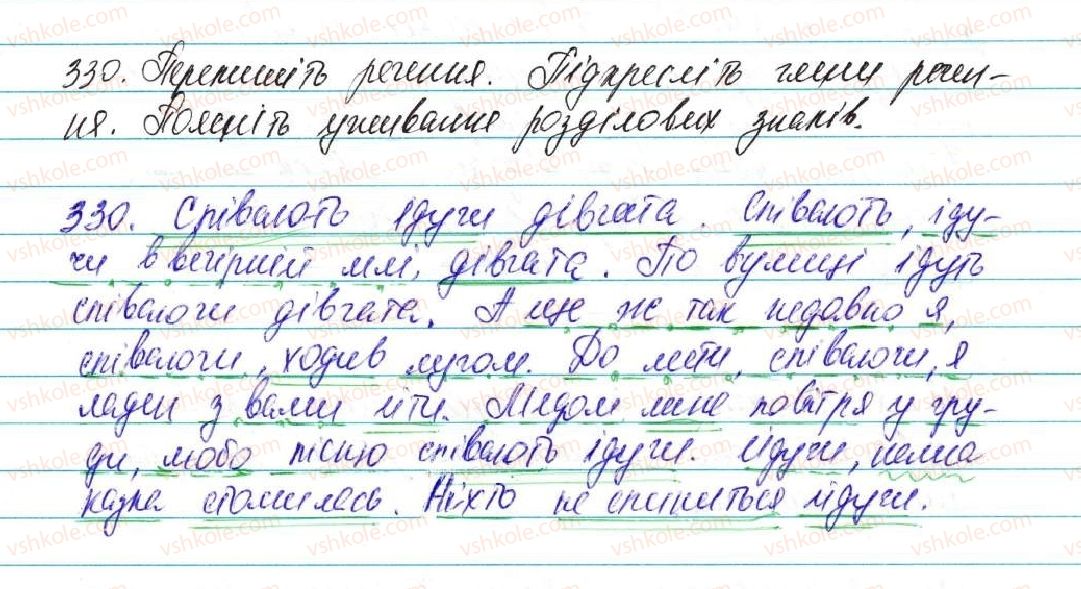 330. Перепишіть речення. Підкресліть члени речен-
ня. Поясніть уживання розділових знаків.
330. Співають ідучи дівчата. Співають, іду-
чи в вечірній млі, дівчата. По вулиці ідуть
співаючи дівчата. А ще ж так недавно я,
співаючи, ходив лугом. До мети, співаючи, я
ладен з вами іти. Медом лине повітря у гру-
ди, любо пісню співають ідучи. Йдучи,
казна стомилась. Ніхто не спиниться йдучи.